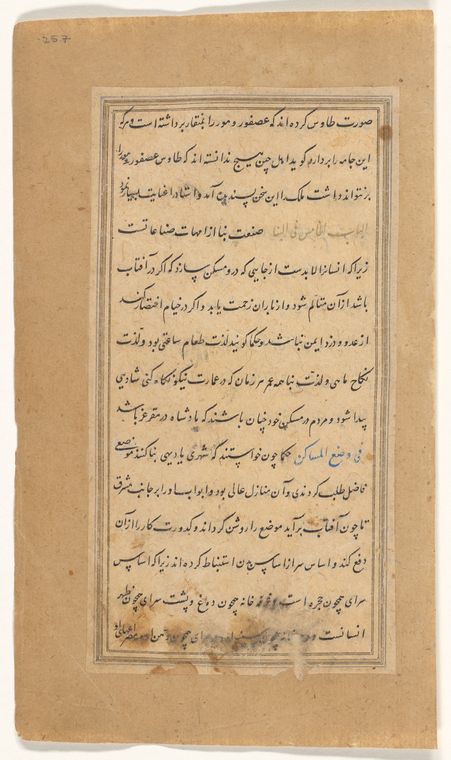 257
صورت طاوس کرده اند که عصفور و مور را بمنقار برداشته است و هر که
این جامه را بردارد گوید اهل چین هیچ ندانسته اند که طاوس عصفور و مور را
برنتواند داشت ملک را این سخن پسندیده آمد و استاد را عنایت بسیار نمود
صنعت بنا از امهات صناعاتست
زیرا که انسانرا لابدست از جایی که درو مسکن سازد که اگر در آفتاب
باشد ازان متالم شود و از باران زحمت یابد و اگر در خیام اختصار کند
از عدو و دزد ایمن نباشد و حکما گویند لذت طعام ساعتی بود و لذت
نکاح ماهی و لذت بنا همه عمر هر زمان که در عمارت نیکو نگاه کنی شادی
پیدا شود و مردم در مسکن خود چنان باشند که پادشاه در مقر عز باشد
فی وضع المساکن حکما چون خواستند که شهری یا دیهی بنا کنند موضعی
فاضل طلب کردندی و آن منازل عالی بود و ابواب او را بر جانب مشرق
تا چون آفتاب برآید موضع را روشن گرداند و کدورت کار را ازان
دفع کند و اساس سرا از اساس بدن استنباط کرده اند زیرا که اساس
سرای همچون حجره است و غرفه خانه همچون دماغ و پشت سرای همچون ظهر
انسانست و خانه چون سینه سرای همچون دهن